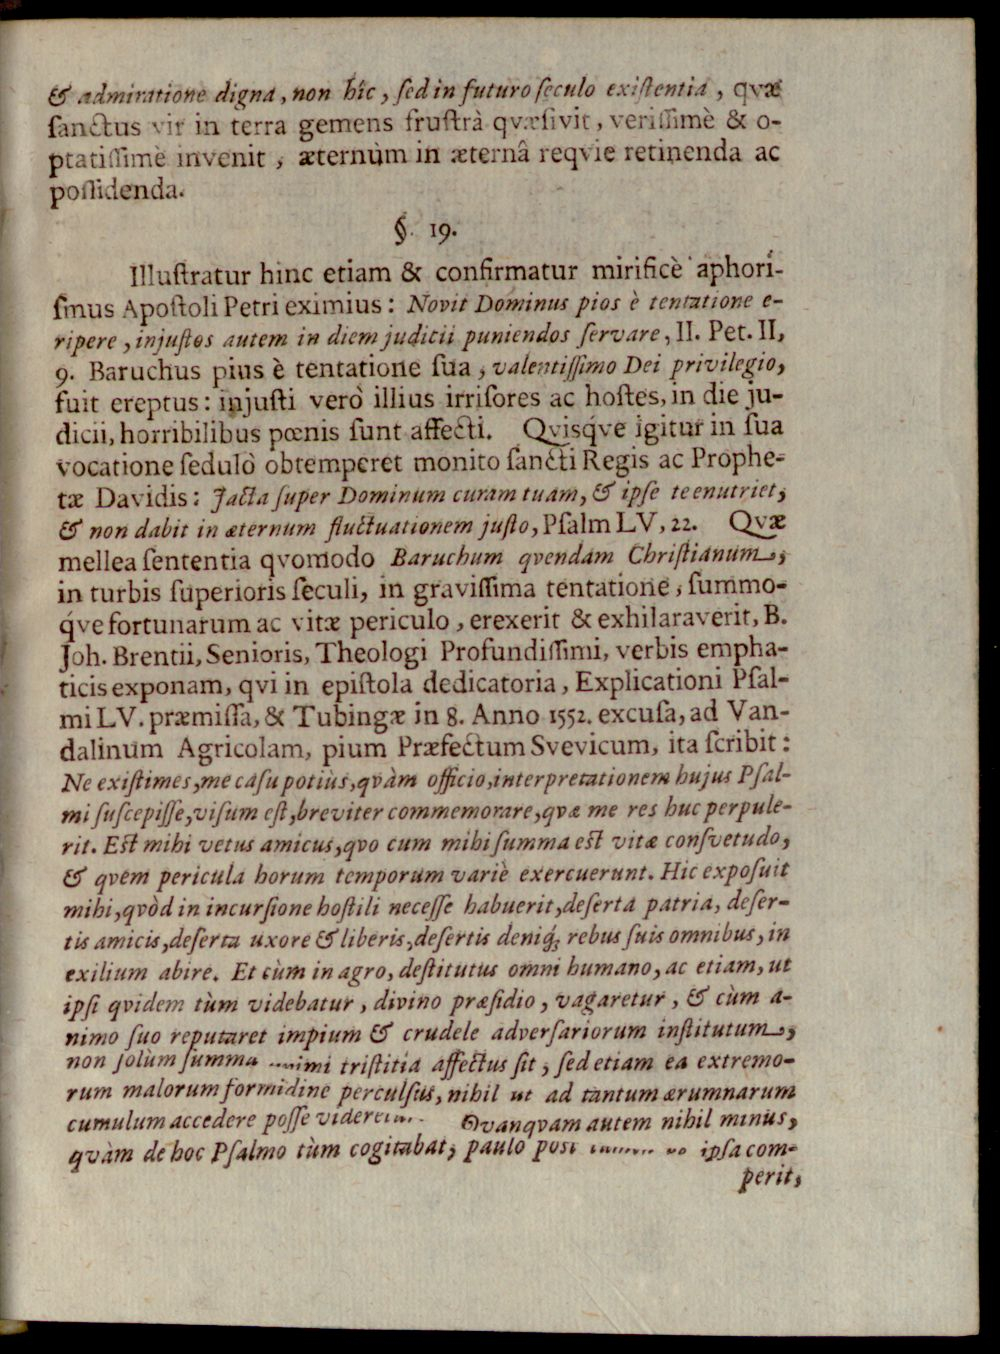 & admiratione digna, non hîc, ſed in futuro ſeculo exiſtentia, qvæ
ſanctus vir in terra gemens fruſtrà qvæſivit, veriſſimè & o-
ptatiſſimè invenit, æternùm in æternâ reqvie retinenda ac
poſſidenda.
§. 19.
Illuſtratur hinc etiam & confirmatur mirificè aphori-
ſmus Apoſtoli Petri eximius: Novit Dominus pios è tentatione e-
ripere, injuſtos autem in diem judicii puniendos ſervare, II. Pet. II,
9. Baruchus pius è tentatione ſua, valentiſſimo Dei privilegio,
fuit ereptus: injuſti verò illius irriſores ac hoſtes, in die ju-
dicii, horribilibus pœnis ſunt affecti. Qvisq́ve igitur in ſua
vocatione ſedulò obtemperet monito ſancti Regis ac Prophe-
tæ Davidis: Jacta ſuper Dominum curam tuam, & ipſe te enutriet,
& non dabit in æternum fluctuationem juſto, Pſalm LV, 22. Qvæ
mellea ſententia qvomodo Baruchum qvendam Chriſtianum,
in turbis ſuperioris ſeculi, in graviſſima tentatione, ſummo-
q́ve fortunarum ac vitæ periculo, erexerit & exhilaraverit, B.
Joh. Brentii, Senioris, Theologi Profundiſſimi, verbis empha-
ticis exponam, qvi in epiſtola dedicatoria, Explicationi Pſal-
mi LV. præmiſſa, & Tubingæ in 8. Anno 1552. excuſa, ad Van-
dalinum Agricolam, pium Præfectum Svevicum, ita ſcribit:
Ne exiſtimes, me caſu potiùs, qvàm officio, interpretationem hujus Pſal-
mi ſuſcepiſſe, viſum eſt, breviter commemorare, qvæ me res huc perpule-
rit. Eſt mihi vetus amicus, qvo cum mihi ſumma eſt vitæ conſvetudo,
& qvem pericula horum temporum variè exercuerunt. Hic expoſuit
mihi, qvòd in incurſione hoſtili neceſſe habuerit, deſerta patria, deſer-
tis amicis, deſerta uxore & liberis, deſertis deniq́; rebus ſuis omnibus, in
exilium abire. Et cùm in agro, deſtitutus omni humano, ac etiam, ut
ipſi qvidem tùm videbatur, divino præſidio, vagaretur, & cùm a-
nimo ſuo reputaret impium & crudele adverſariorum inſtitutum,
non ſolùm ſumma animi triſtitia affectus ſit, ſed etiam ea extremo-
rum malorum formidine perculſus, nihil ut ad tantum ærumnarum
cumulum accedere poſſe videretur. Qvanqvam autem nihil minus,
qvàm de hoc Pſalmo tùm cogitabat, paulo post ipſa com-
perit,